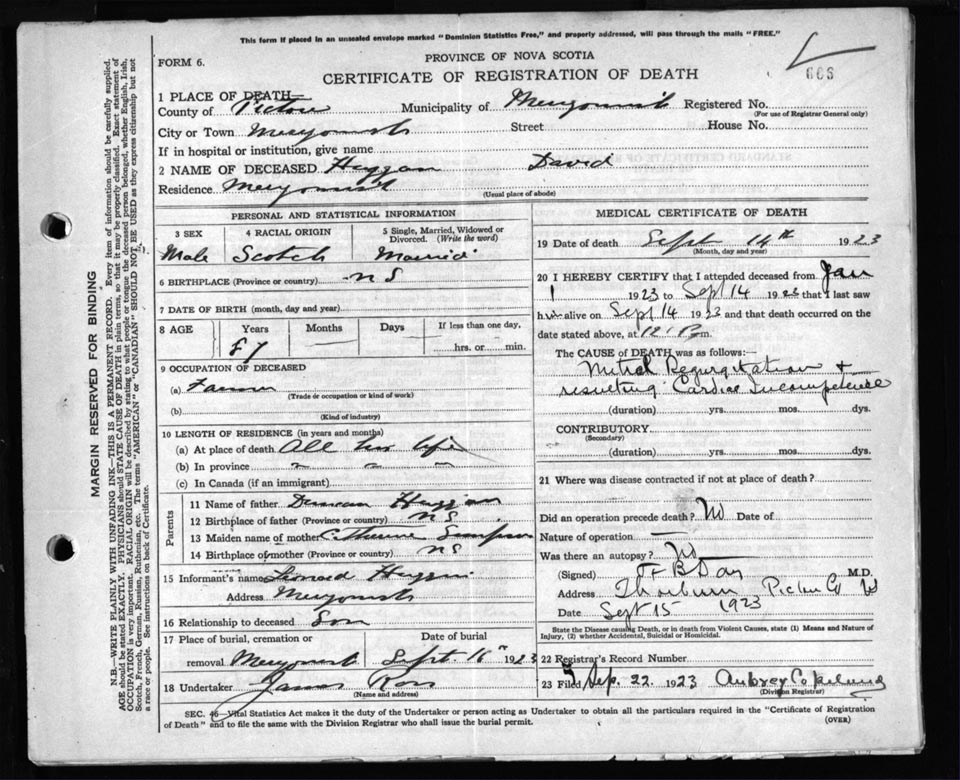 This form if placed in an unsealed envelope marked "Dominion Statistics Free," and properly addressed, will pass through the mails "FREE."
FORM 6.
PROVINCE OF NOVA SCOTIA
CERTIFICATE OF REGISTRATION OF DEATH
666
1 PLACE OF DEATH—
County of Pictou Municipality of Merigomish Registered No.
(For use of Registrar General only)
City or Town Merigomish Street House No.
If in hospital or institution, give name
2 NAME OF DECEASED Huggan David
Residence Merigomish
(Usual place of abode)
PERSONAL AND STATISTICAL INFORMATION
3 SEX 4 RACIAL ORIGIN 5 Single, Married, Widowed or Divorced. (Write the word)
Male Scotch Married
6 BIRTHPLACE (Province or country) NS
7 DATE OF BIRTH (month, day and year)
8 AGE Years Months Days If less than one day,
hrs. or min.
9 OCCUPATION OF DECEASED
(a) Farmer
(Trade or occupation or kind of work)
(b)
(Kind of industry)
10 LENGTH OF RESIDENCE (in years and months)
(a) At place of death All his life
(b) In province " " "
(c) In Canada (if an immigrant)
Parents
11 Name of father Duncan Huggan
12 Birthplace of father (Province or country) NS
13 Maiden name of mother Catherine Simpson
14 Birthplace of mother (Province or country) NS
15 Informant's name Leonard Huggan
Address Merigomish
16 Relationship to deceased Son
17 Place of burial, cremation or Date of burial
removal Merigomish Sept. 16th 1923
18 Undertaker James Ross
(Name and address)
MEDICAL CERTIFICATE OF DEATH
19 Date of death Sept 14th 1923
(Month, day and year)
20 I HEREBY CERTIFY that I attended deceased from Jan
1 1923 to Sept 14 1923 that I last saw
him alive on Sept 14 1923 and that death occurred on the
date stated above, at 12 1 P m.
The CAUSE OF DEATH was as follows:—
Mitral Regurgitation +
resulting Cardiac Incompetence
(duration) yrs. mos. dys.
CONTRIBUTORY
(Secondary)
(duration) yrs. mos. dys.
21 Where was disease contracted if not at place of death?
Did an operation precede death? No Date of
Nature of operation
Was there an autopsy? No
(Signed) B Day M.D.
Address Thorburn Pictou Co
Date Sept 15 1923
State the Disease causing Death, or in death from Violent Causes, state (1) Means and Nature of
Injury, (2) whether Accidental, Suicidal or Homicidal.
22 Registrar's Record Number
23 Filed Sep. 22. 1923 Aubrey Copeland
(Division Registrar)
SEC. 46—Vital Statistics Act makes it the duty of the Undertaker or person acting as Undertaker to obtain all the particulars required in the "Certificate of Registration
of Death" and to file the same with the Division Registrar who shall issue the burial permit.
(OVER)
MARGIN RESERVED FOR BINDING
N.B.—WRITE PLAINLY WITH UNFADING INK—THIS IS A PERMANENT RECORD. Every item of information should be carefully supplied.
AGE should be stated EXACTLY. PHYSICIANS should STATE CAUSE OF DEATH in plain terms, so that it may be properly classified. Exact statement of
OCCUPATION is very important. RACIAL ORIGIN will be described by stating to what people or tongue the deceased person belonged, whether English, Irish,
Scotch, French, German, Russian, Ruthenian, etc. The terms "AMERICAN" or "CANADIAN" SHOULD NOT BE USED as they express citizenship but not
a race or people. See instructions on back of Certificate.